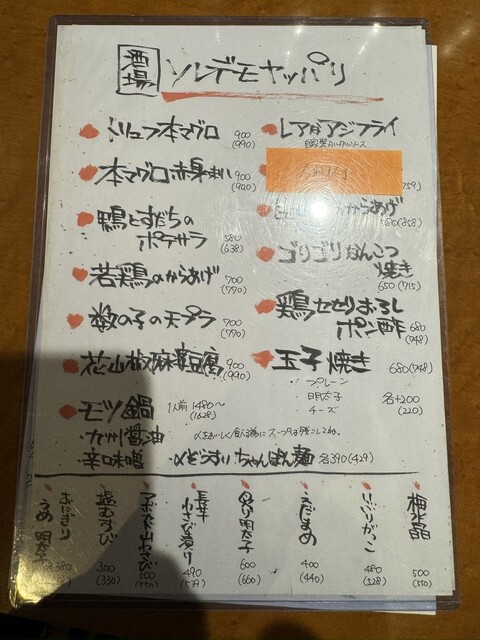 酒場 ソレデモヤッパリ
トリュフ本マグロ 900 (990)
本マグロ赤身刺し 900
鴨とすだちの
ポテサラ 580 (638)
若鶏のからあげ 700 (770)
数の子の天プラ 700 (770)
花山椒麻婆豆腐 900 (990)
モツ鍋 1人前 1480〜 (1628)
・九州醤油
・辛口味噌
レアなアジフライ
自家製タルタルソース
からあげ
ゴリゴリなんこつ
焼き
650 (715)
鶏せせりおろし
ポン酢 680 (748)
玉子焼き 680 (748)
・プレーン
・明太子 各+200
・チーズ (220)
・〆ぞうすい ちゃんぽん麺 各390 (429)
梅水晶 500 (550)
いぶりがっこ 480 (528)
えだまめ 400 (440)
明太子 600 (660)
長芋
わさび漬け 490 (539)
500 (550)
塩むすび 300 (330)
おにぎり
うめ 明太子 380